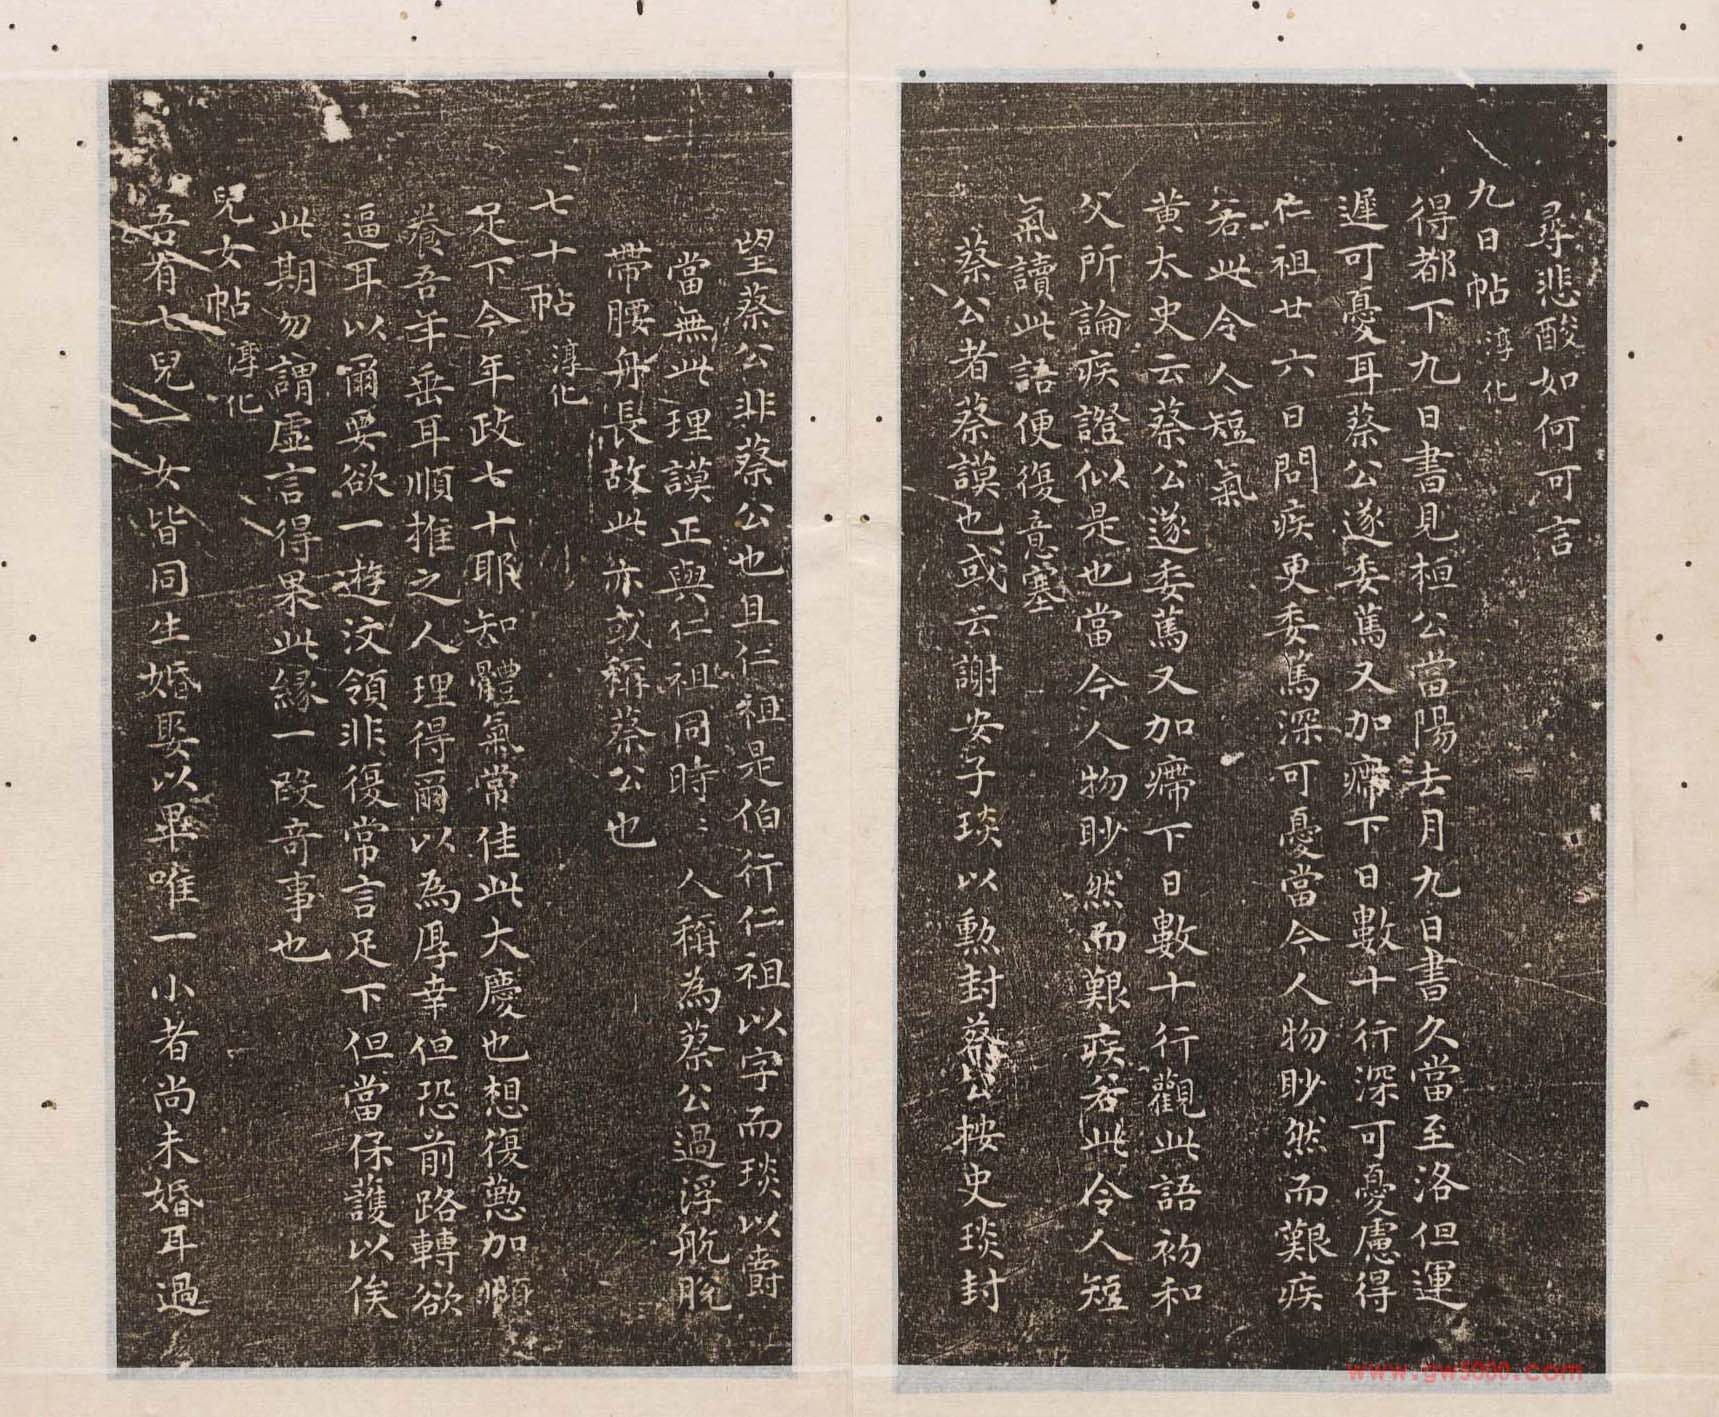 尋悲酸如何可言
九日帖 淳化
得都下九日書見桓公當陽去月九日書久當至洛但運
遲可憂耳蔡公遂委篤又加㿃下日數十行深可憂慮得
仁祖廿六日問疾更委篤深可憂當今人物眇然而艱疾
若此令人短氣
黄太史云蔡公遂委篤又加㿃下日數十行觀此語初和
父所論疾證似是也當今人物眇然而艱疾若此令人短
氣讀此語便復意塞
蔡公者蔡謨也或云謝安子琰以勲封蔡公按史琰封
望蔡公非蔡公也且仁祖是伯行仁祖以字而琰以爵
當無此理謨正與仁祖同時〻人稱為蔡公過浮航脫
帶腰舟長故此亦或稱蔡公也
七十帖 淳化
足下今年政七十耶知體氣常佳此大慶也想復懃加頤
養吾年垂耳順推之人理得爾以為厚幸但恐前路轉欲
逼耳以爾要欲一遊汶領非復常言足下但當保護以俟
此期勿謂虛言得果此緣一段奇事也
兒女帖 淳化
吾有七兒一女皆同生婚娶以畢唯一小者尚未婚耳過
www.gw5000.com